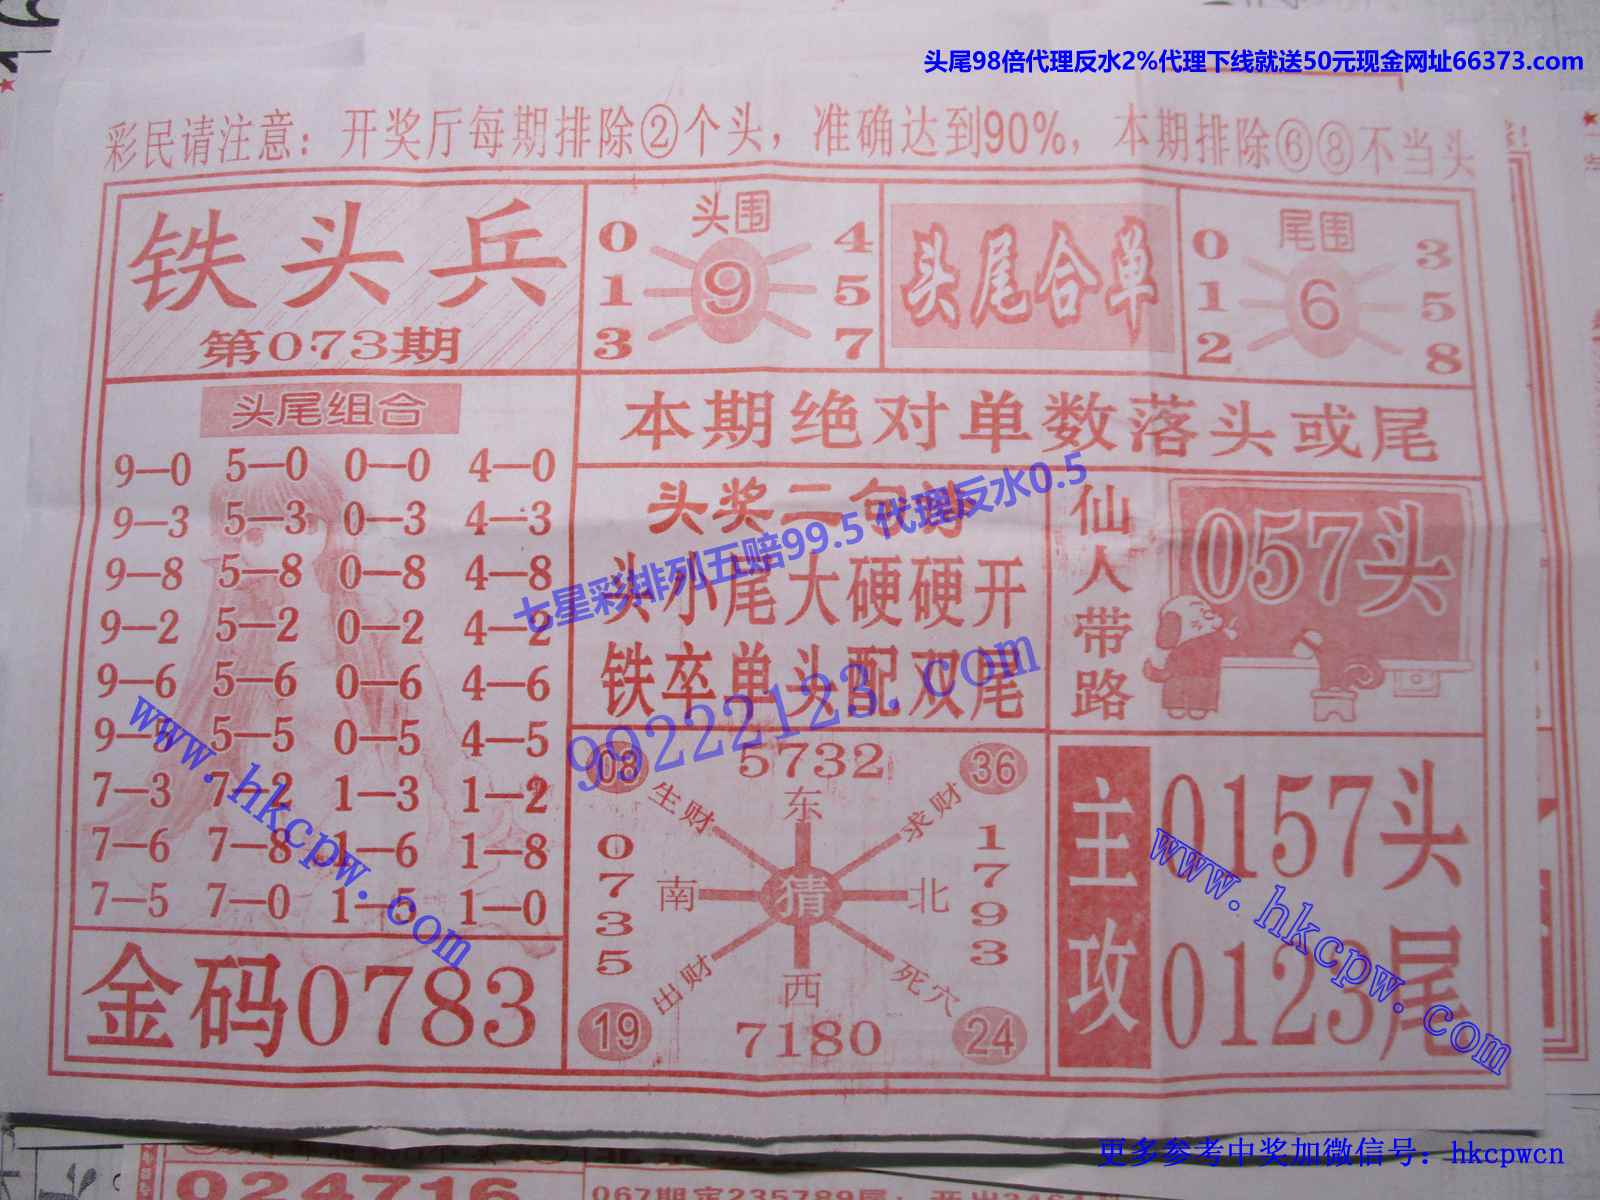 头尾98倍代理反水2%代理下线就送50元现金网址66373.com
彩民请注意：开奖厅每期排除②个头，准确达到90%，本期排除⑥⑧不当头
铁头兵
第073期
头围
0 4
1 9 5
3 7
头尾合单
尾围
0 3
1 6 5
2 8
头尾组合
9—0 5—0 0—0 4—0
9—3 5—3 0—3 4—3
9—8 5—8 0—8 4—8
9—2 5—2 0—2 4—2
9—6 5—6 0—6 4—6
9—5 5—5 0—5 4—5
7—3 7—2 1—3 1—2
7—6 7—8 1—6 1—8
7—5 7—0 1—5 1—0
金码0783
本期绝对单数落头或尾
头奖二句诗
头小尾大硬硬开
铁卒单头配双尾
仙人带路
057头
08 5732 36
生财 东 求财
0735 南 猜 北 1793
出财 西 死穴
19 7180 24
主攻
0157头
0123尾
七星彩排列五赔99.5 代理反水0.5
99222123.com
www.hkcpw.com
www.hkcpw.com
更多参考中奖加微信号：hkcpwcn
024716
067期定235789尾：开出2464